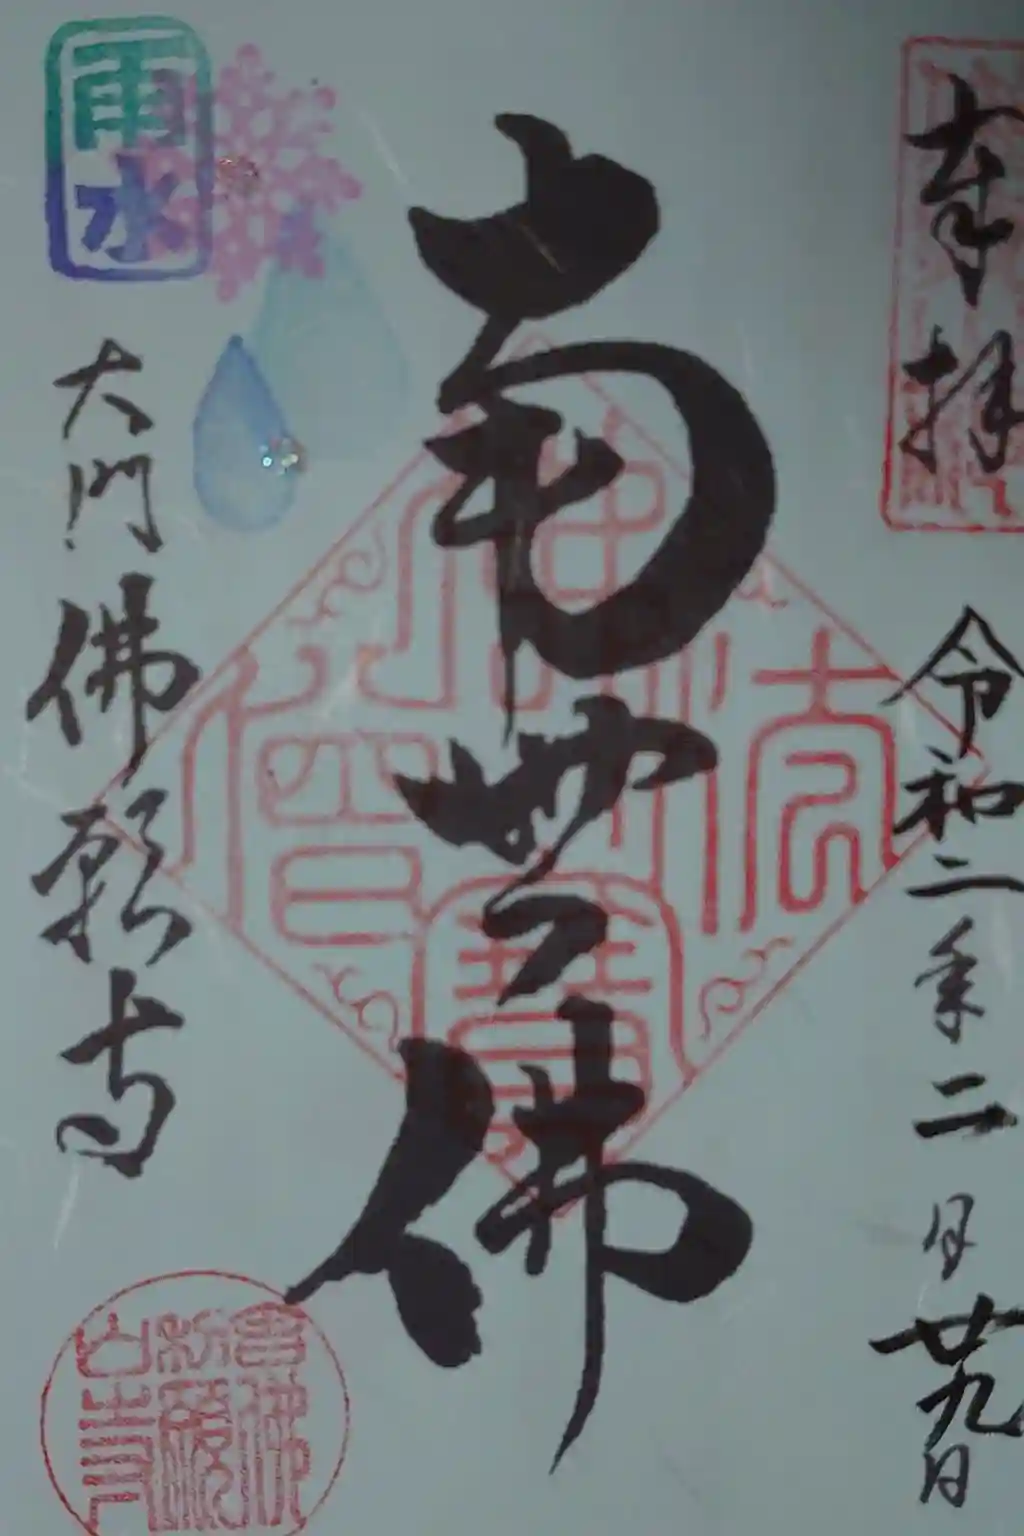 奉拝
令和二年二月廿九日
南無佛
佛法僧寶
雨水
大門佛願寺